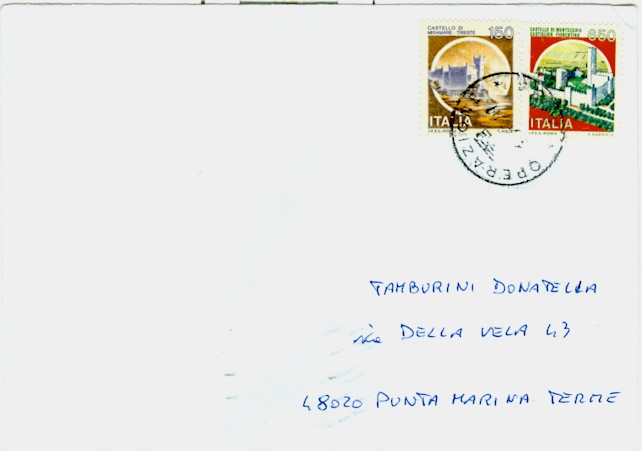 CASTELLO DI
MIRAMARE - TRIESTE
150
ITALIA
I.P.Z.S. ROMA
CASTELLO DI MONTECCHIO
CASTIGLION FIORENTINO
650
ITALIA
I.P.Z.S. ROMA
OPERAZIO
TAMBURINI DONATELLA
via DELLA VELA 43
48020 PUNTA MARINA TERME